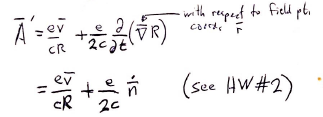 Ā' = ev̄/cR + e/2c ∂/∂t (∇̄R) ← with respect to field pt. coords. r̄
= ev̄/cR + e/2c ṅ̄ (see HW#2)